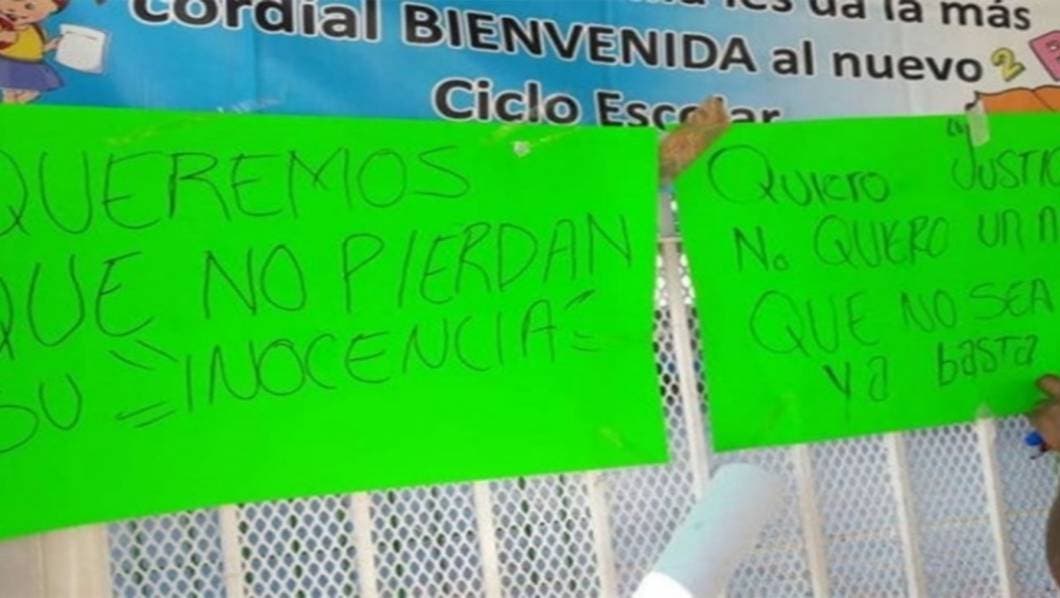 les da la más
cordial BIENVENIDA al nuevo
Ciclo Escolar
QUEREMOS
QUE NO PIERDAN
SU "INOCENCIA"
Quiero
No QUIERO un
QUE NO SEA
ya basta